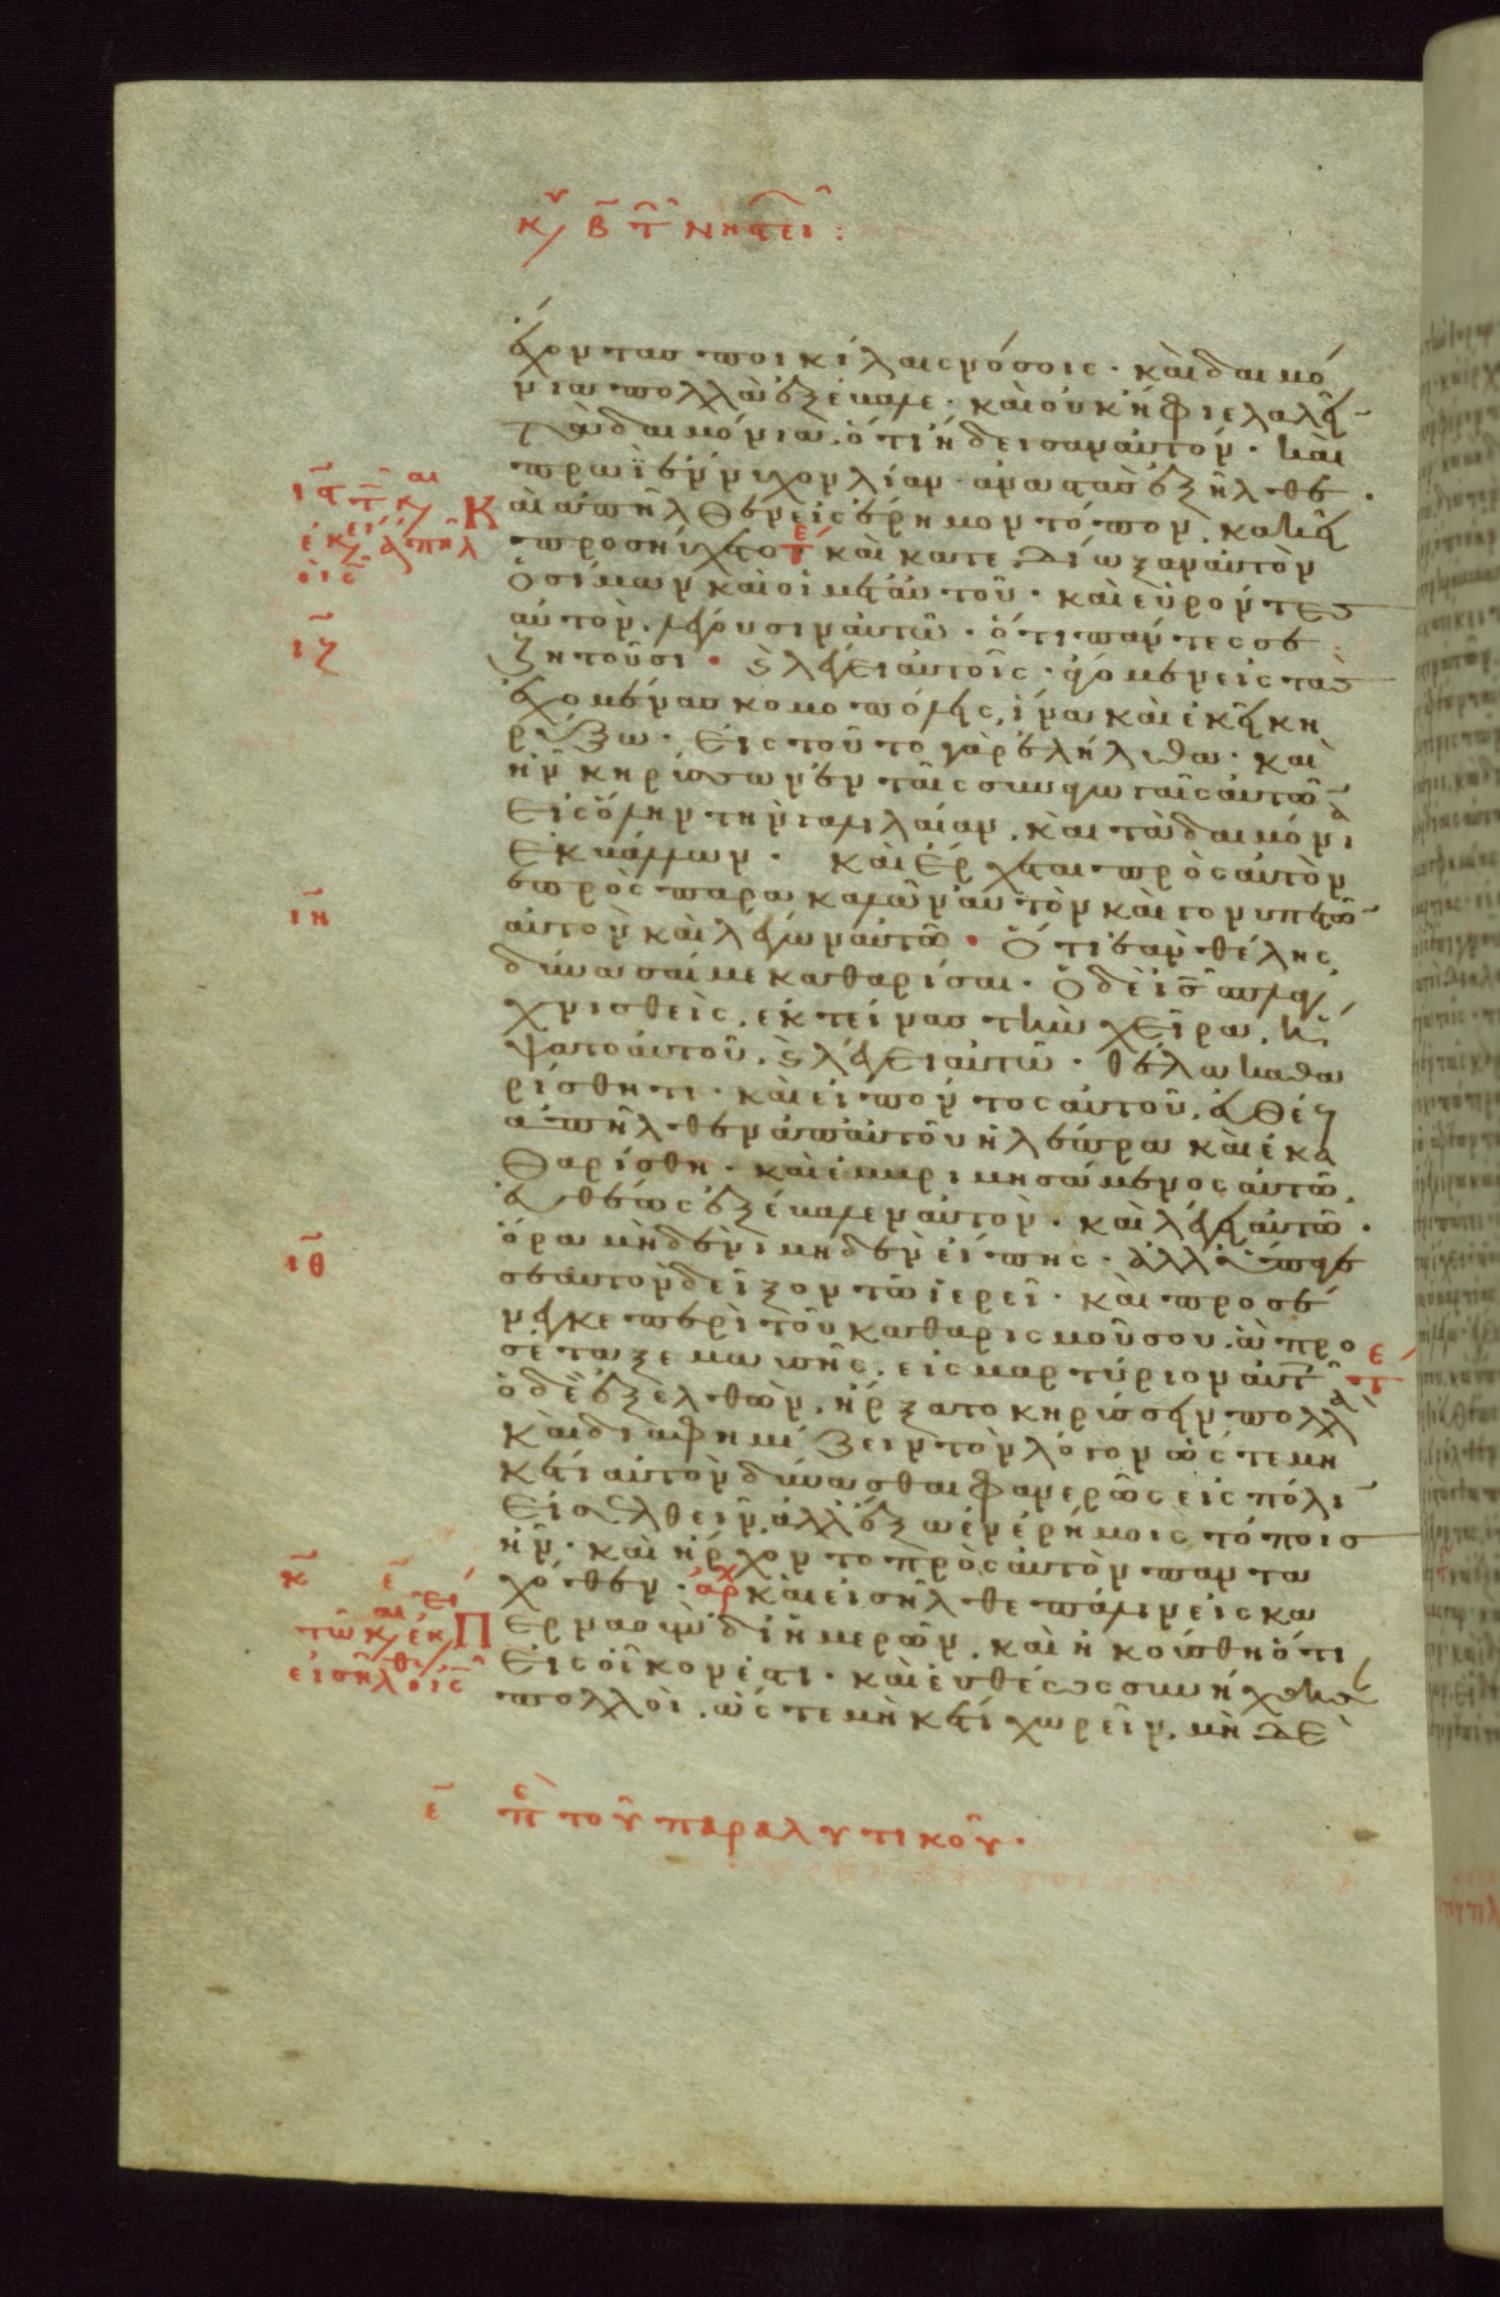 κυ β τ νηστει :
ἔχοντας ποικίλαις νόσοις · καὶ δαιμό
νια πολλὰ ἐξέβαλε · καὶ οὐκ ἤφιε λαλεῖν
τὰ δαιμόνια. ὅτι ἤδεισαν αὐτόν · καὶ
πρωῒ ἔννυχον λίαν ἀναστὰς ἐξῆλθε ·
αὶ ἀπῆλθεν εἰς ἔρημον τόπον. κακεῖ
προσηύχετο τε καὶ κατεδίωξαν αὐτὸν
ὁ σίμων καὶ οἱ μετ αὐτοῦ · καὶ εὑρόντες
αὐτὸν. λέγουσιν αὐτῶ · ὅτι πάντες σε
ζητοῦσι · καὶ λέγει αὐτοῖς · ἄγομεν εἰς τὰς
ἐχομένας κομοπόλεις, ἵνα καὶ ἐκεῖ κη
ρύξω · εἰς τοῦτο γὰρ ἐλήλυθα · καὶ
ἦν κηρύσσων ἐν ταῖς συναγωγαῖς αὐτῶν
εἰς ὅλην τὴν γαλιλαίαν. καὶ τὰ δαιμόνια
ἐκβάλλων · καὶ ἔρχεται πρὸς αὐτὸν
λεπρὸς παρακαλῶν αὐτὸν καὶ γονυπετῶν
αὐτὸν καὶ λέγων αὐτῶ · ὅτι ἐὰν θέλης
δύνασαί με καθαρίσαι · ὁ δὲ ις σπλαγ
χνισθεὶς. ἐκτείνας τὴν χεῖρα. ἥ
ψατο αὐτοῦ. καὶ λέγει αὐτῶ · θέλω καθα
ρίσθητι · καὶ εἰπόντος αὐτοῦ. εὐθέως
ἀπῆλθεν ἀπ αὐτοῦ ἡ λέπρα καὶ ἐκα
θαρίσθη · καὶ ἐμβριμησάμενος αὐτῶ.
εὐθέως ἐξέβαλεν αὐτὸν · καὶ λέγει αὐτῶ ·
ὅρα μηδενὶ μηδὲν εἴπης · ἀλλ ὕπαγε
σεαυτὸν δεῖξον τῶ ἱερεῖ · καὶ προσέ
νεγκε περὶ τοῦ καθαρισμοῦ σου. ἃ προ
σέταξε μωσῆς. εἰς μαρτύριον αὐτοῖς τε
ὁ δὲ ἐξελθὼν. ἤρξατο κηρύσσειν πολλὰ
καὶ διαφημίζειν τὸν λόγον ὥς τε μη
κέτι αὐτὸν δύνασθαι φανερῶς εἰς πόλιν
εἰσελθεῖν. ἀλλ ἔξω ἐν ἐρήμοις τόποις
ἦν · καὶ ἤρχοντο πρὸς αὐτὸν παντα
χόθεν · αρχ καὶ εἰσῆλθε πάλιν εἰς κα
περναοὺμ δι ἡμερῶν. καὶ ἠκούσθη ὅτι
εἰς οἶκον ἐστι · καὶ εὐθέως συνήχθησαν
πολλοὶ. ὥς τε μὴ κέτι χωρεῖν. μὴ δὲ
ις
ιζ
ιη
ιθ
κ
ε
ε πε τοῦ παραλυτικοῦ ·